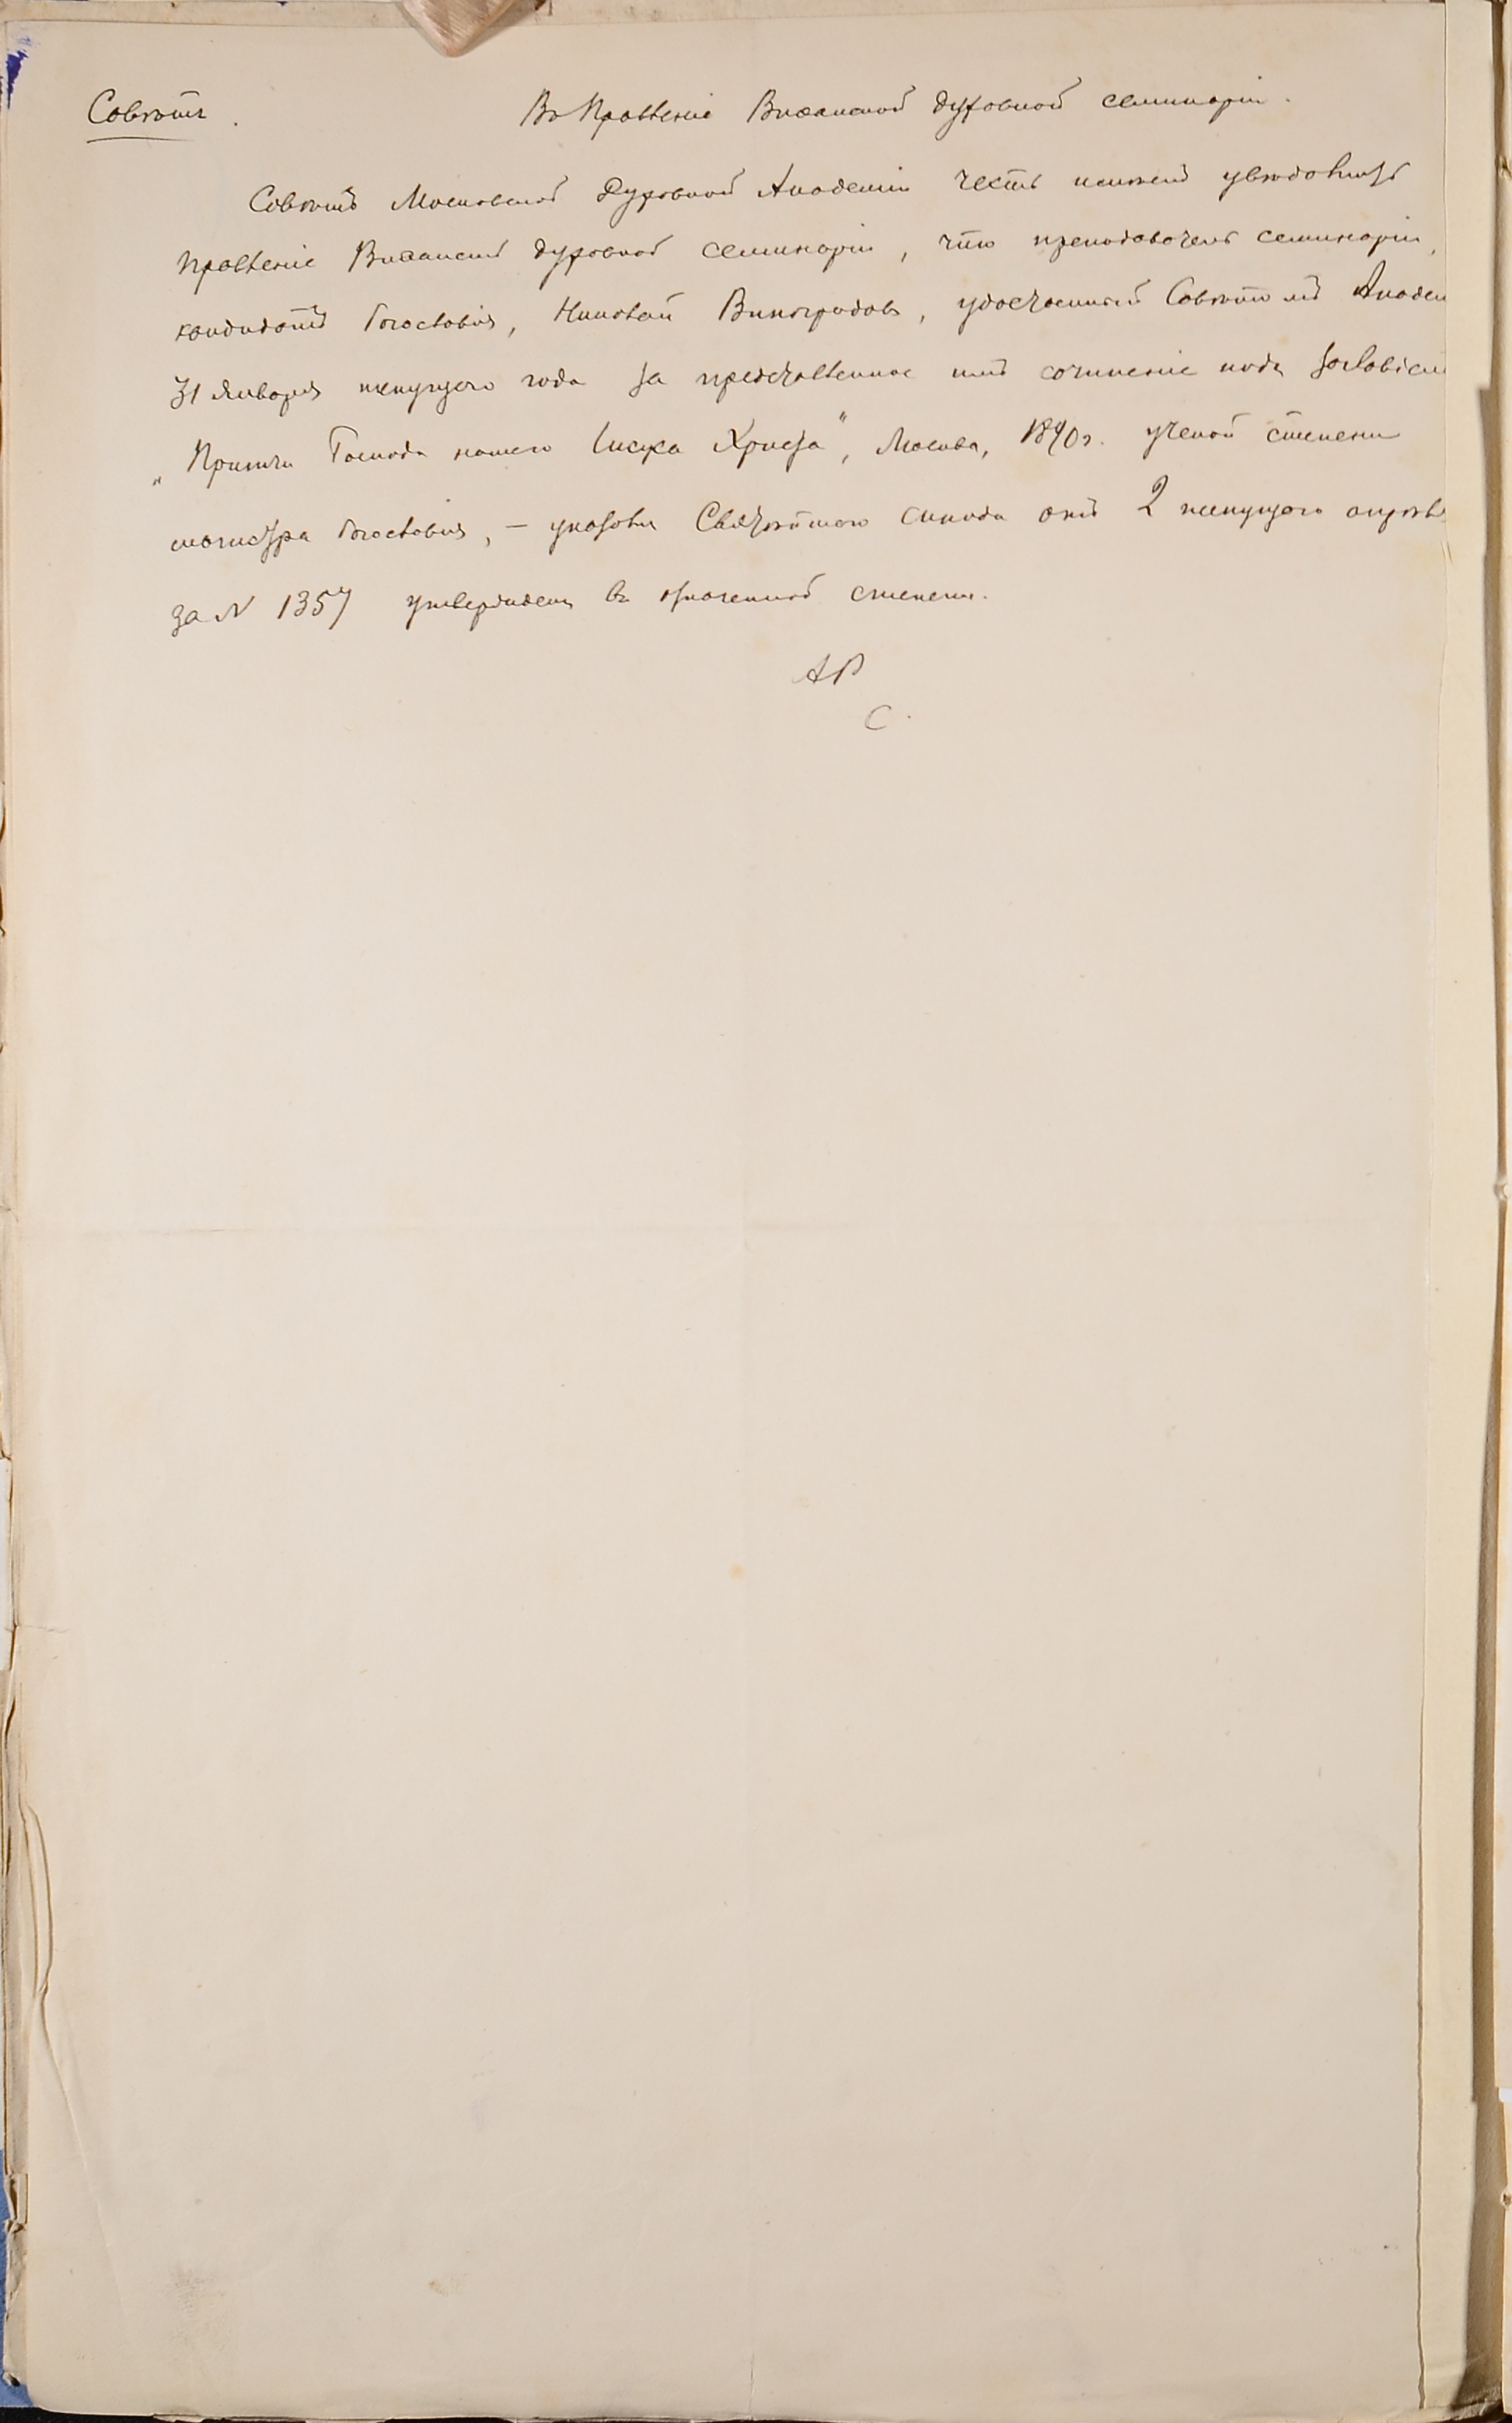 Совѣтъ.
Въ Правленіе Виѳанской духовной семинаріи.
Совѣтъ Московской Духовной Академіи честь имѣетъ увѣдомить
Правленіе Виѳанской духовной семинаріи, что преподаватель семинаріи,
кандидатъ богословія, Николай Виноградовъ, удостоенный Совѣтомъ Академ
31 января текущаго года за представленное имъ сочиненіе подъ заглавіем
„Притчи Господа нашего Іисуса Христа", Москва, 1890 г. ученой степени
магистра богословія, – указомъ Святѣйшаго Синода отъ 2 текущаго апрѣл
за N 1357 утвержденъ въ означенной степени.
АР
С.